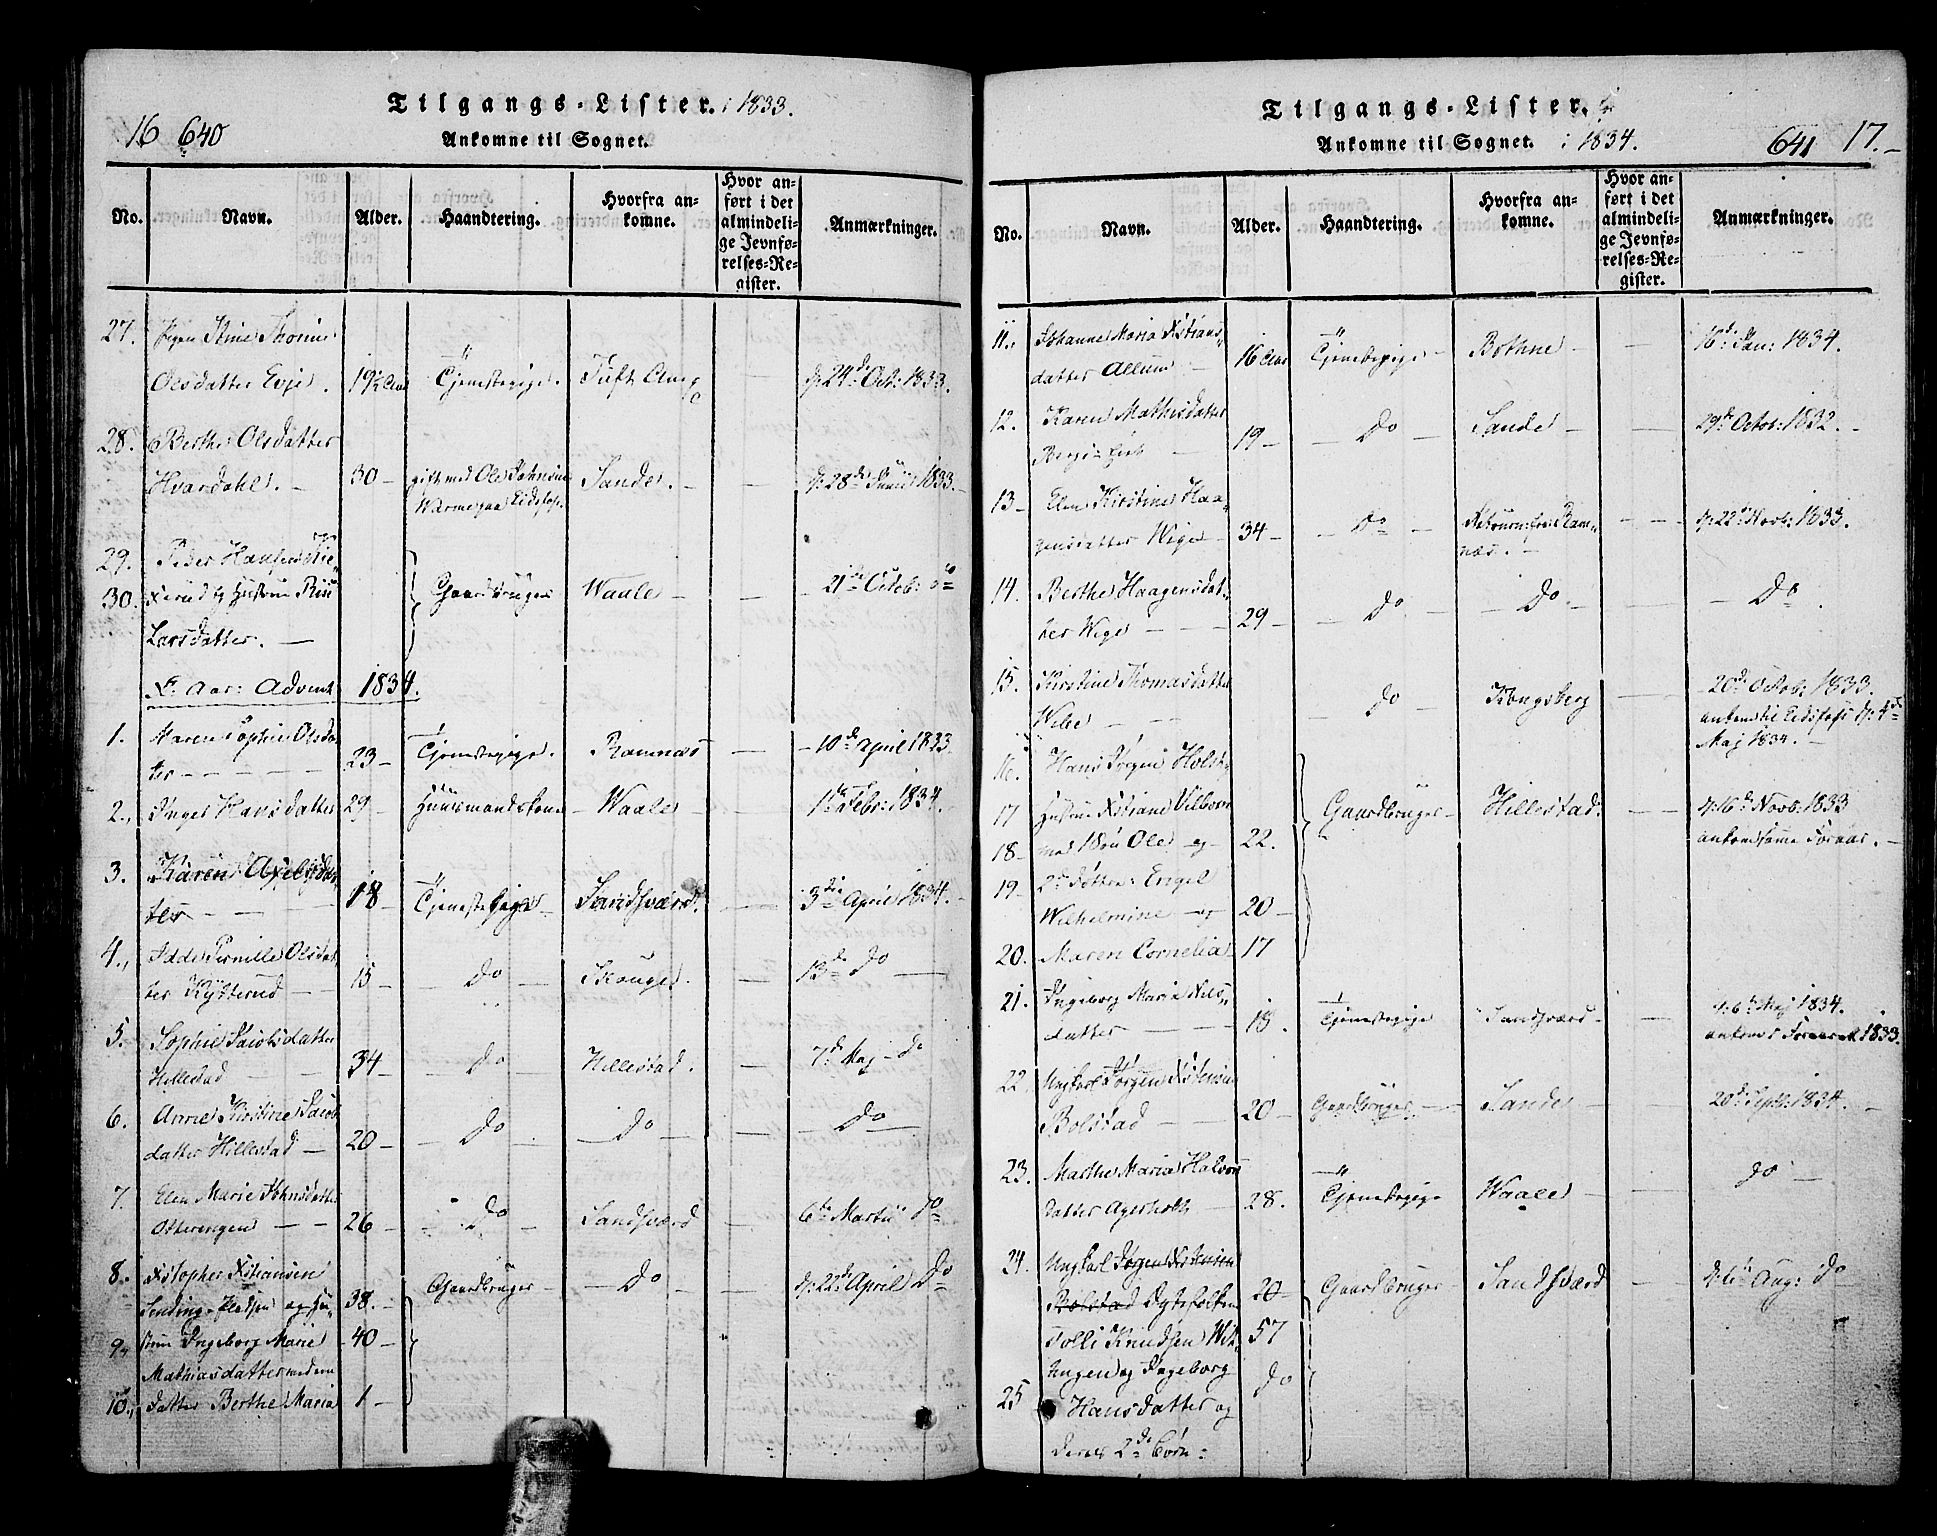 16 640
Tilgangs-Lister. i 1833.
Ankomne til Sognet.
No. Navn. Alder. Haandtering. Hvorfra an-
komne. Hvor an-
ført i det
almindeli-
ge Jevnfø-
relses-Re-
gister. Anmærkninger.
27. Pigen Stine Thorine
Olsdatter Evje. 19½ Aar Tjenestepige. Tuft Ann: d: 24de Oct: 1833.
28. Berthe Olsdatter
Hvardahl. 30 gift med Ole Johnsen Sande. d: 28de Junii 1833.
Warme paa Eidsfos.
29. Peder Hansen
30. og Hustrue
Larsdatter. Gaardbruger Waale 21de Octob: do
K: Aar: Advent 1834.
1. Maren Sophie Olsdat
ter 23 Tjenestepige. Ramnæs 10de April 1833.
2. Inger Hansdatter 29 Huusmandskone Waale 1de Febr: 1834.
3. Karen Axelsdat
ter 18 Tjenestepige Sandsværd. 3die April 1834.
4. Idde Pernille Olsdat
ter 15 Do Skouger. 13de Do
5. Sophie Jacobsdatter
Hillestad 34 Do Hillestad. 7de Maj Do
6. Anne Kirstine Jacob
datter Hillestad 20 Do Do Do
7. Elen Marie Johnsdatter
Otterengen 26 Do Sandsværd 6te Martii Do
8. Xstopher Xstiansen
og Hu- 38. Gaardbruger Do d: 22de April Do
9. strue Ingeborg Marie 40
Mathiasdatter med en
10. datter Berthe Maria 1
Tilgangs-Lister.
Ankomne til Sognet. i 1834. 641 17.
No. Navn. Alder. Haandtering. Hvorfra an-
komne. Hvor an-
ført i det
almindeli-
ge Jevnfø-
relses-Re-
gister. Anmærkninger.
11. Johanne Maria Xstians
datter Allum 16 Aar Tjenestepige Bothne 16de Jan: 1834.
12. Karen Mathisdatter
19 Do Sande 29de Octob: 1832.
13 Elen Kirstine Haa
gensdatter Wige 34 Do Retourn: fra Ram d: 22de Novb: 1833.
næs.
14. Berthe Haagensdat
ter Wige 29 Do Do Do
15. Kirstine Thomasdatter
Wibe Do Kongsberg 20de Octob: 1833.
ankom til Eidsfos d: 4de
Maj 1834.
16. Hans Jørgen Holst
17 Hustrue Xstiane Vilborn Gaardbruger Hillestad. d: 16de Novb: 1833
18 med 1 Søn Ole og 22. ankom samme Foraar.
19. 2de Døttre: Engel
Wilhelmine og 20
20. Maren Cornelia 17
21. Ingeborg Maria Nels
datter 18. Tjenestepige Sandsværd d: 6te Maj 1834.
ankom i Foraaret 1833.
22. Ungkarl Jørgen Xstensen
Bolstad 20 Gaardbruger Sande 20de Septb: 1834.
23. Marthe Maria Halvors
datter Agerholt 28. Tjenestepige Waale do
24. Ungkarl Jørgen Xstensen
Bolstad Ægtefolkene 20 Gaardbruger Sandsværd d: 6te Aug: Do
Tolli Knudsen Wit 57
tingen og Ingeborg Do
25 Hansdatter og
deres 2de Børn: